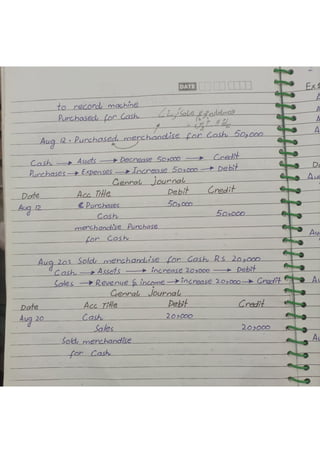 DATE
to record machine
Purchased for Cash
Aug 12 - Purchased merchandise for Cash 50,000
Cash → Assets → Decrease 50,000 → Credit
Purchases → Expenses → Increase 50,000 → Debit
Genral Journal
Date Acc Title Debit Credit
Aug 12 Purchases 50,000
Cash 50,000
merchandise Purchase
for Cash
Aug 20: Sold merchandise for Cash RS 20,000
Cash → Assets → increase 20,000 → Debit
Sales → Revenue & Income → increase 20,000 → Credit
Genral Journal
Date Acc Title Debit Credit
Aug 20 Cash 20,000
Sales 20,000
Sold merchandise
for Cash